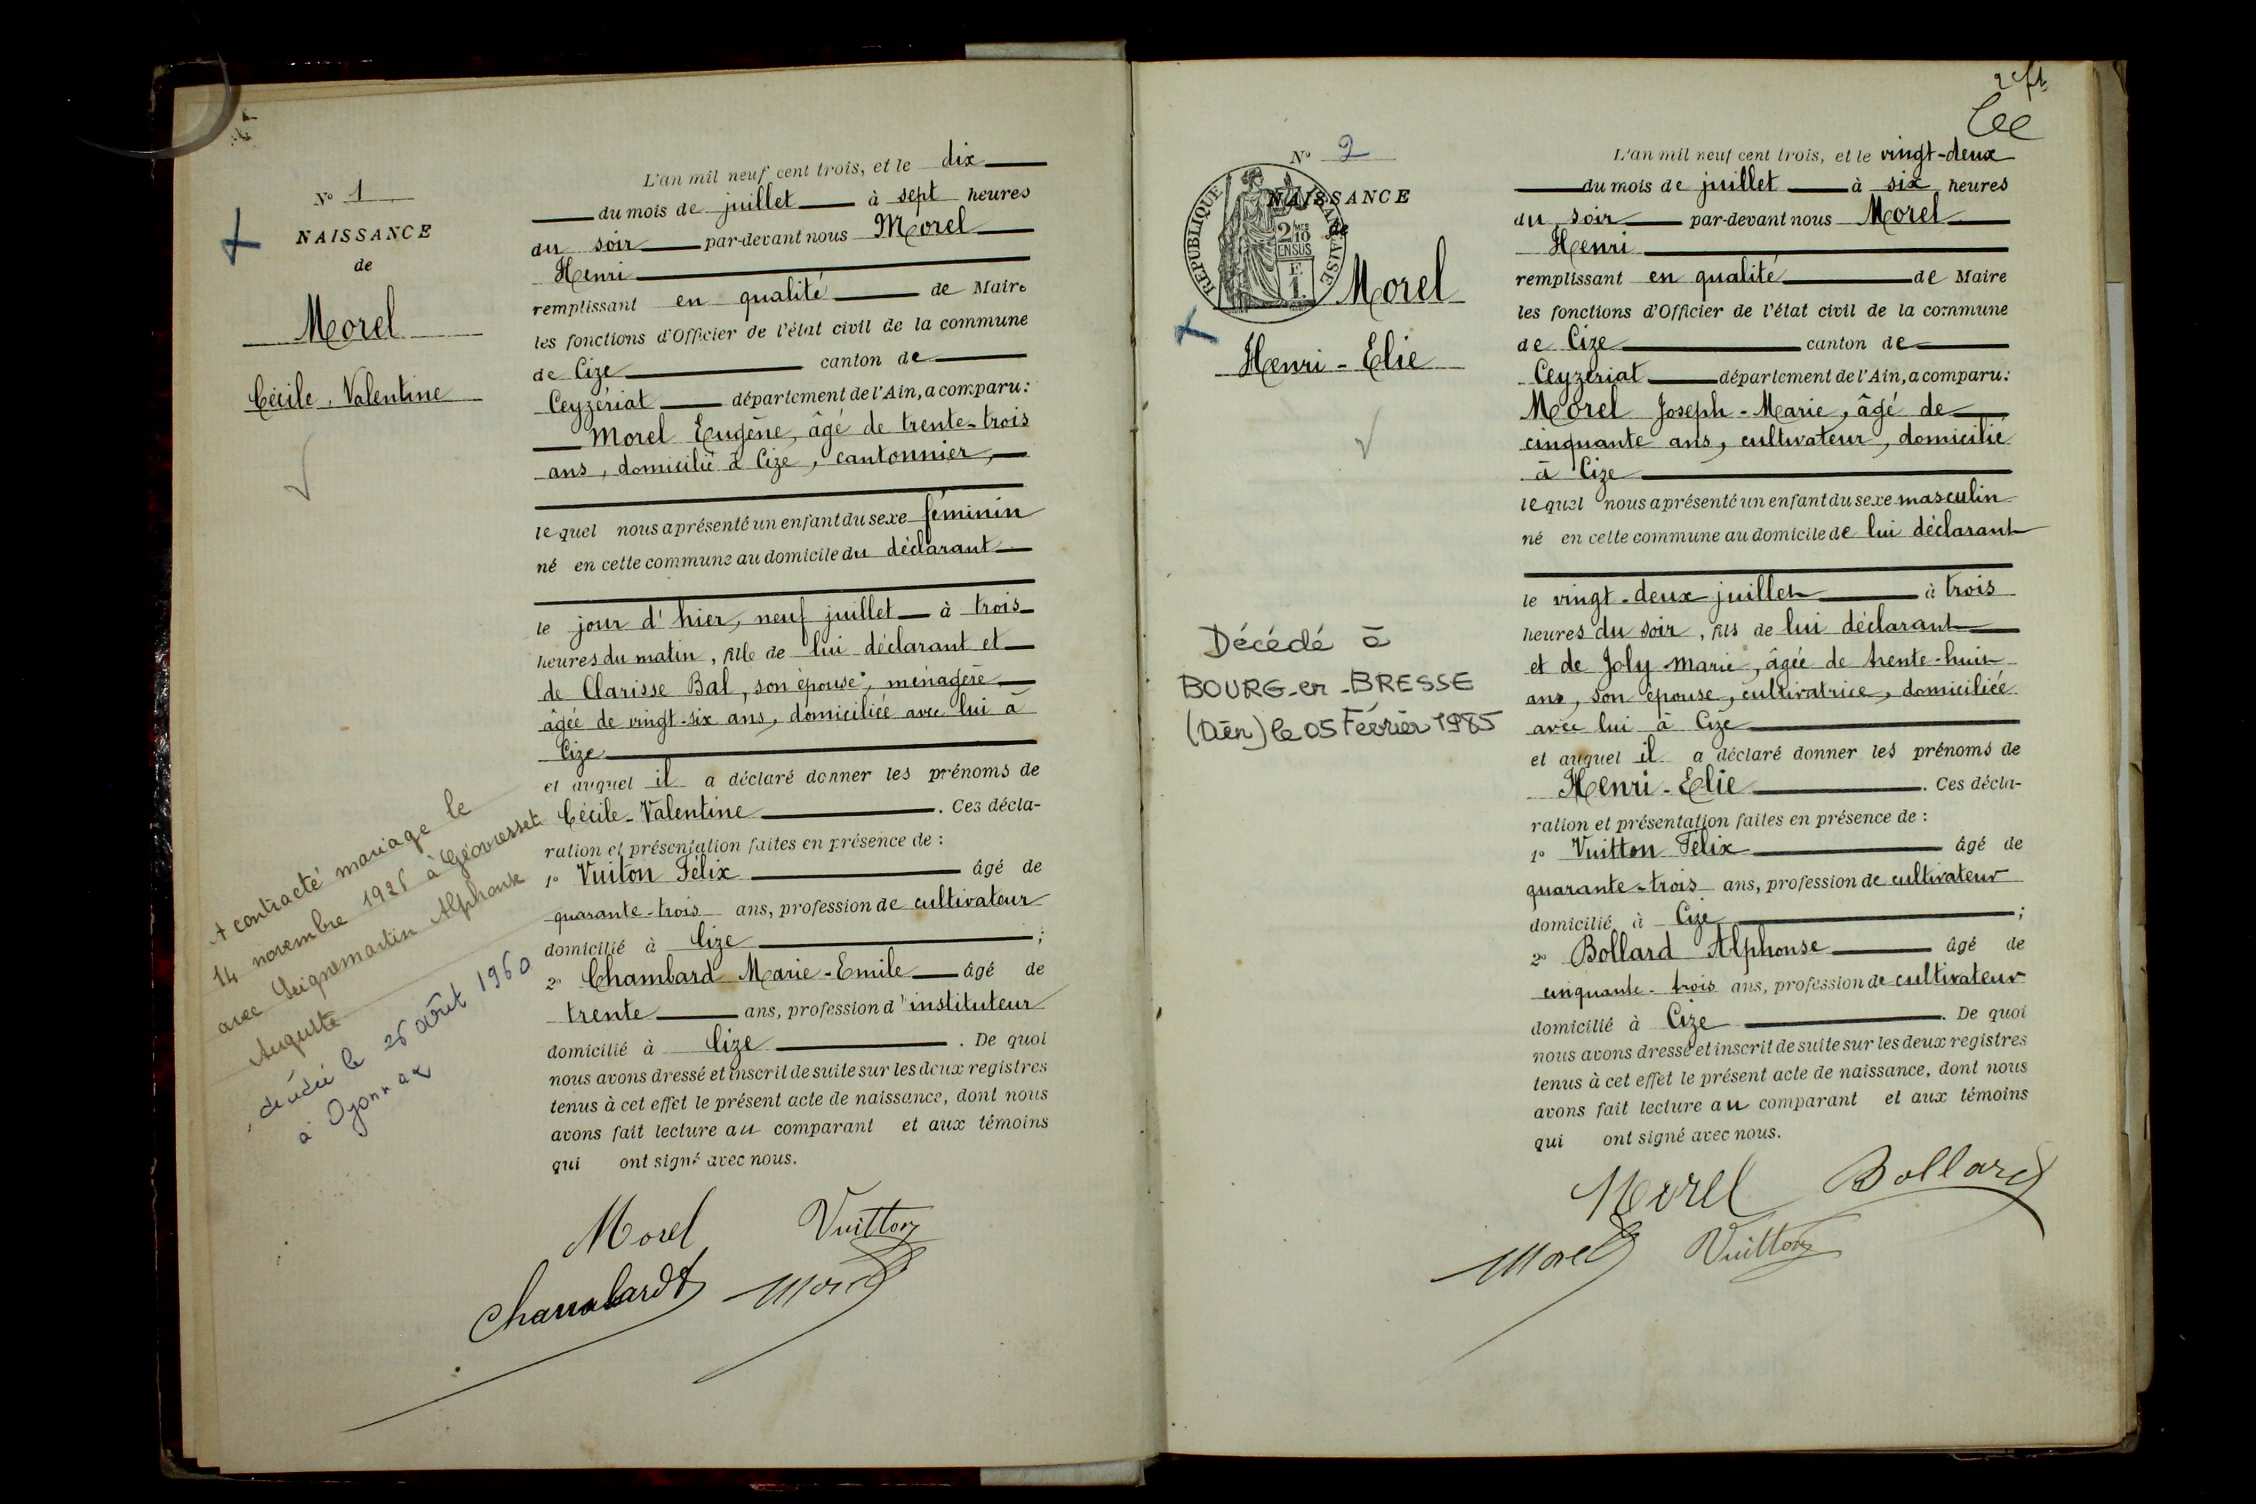 N° 1
NAISSANCE
de
Morel
Cécile, Valentine
A contracté mariage le
14 novembre 1925 à Géovresset
avec Seignemartin Alphonse
Auguste
décédée le 26 août 1960
à Oyonnax
L'an mil neuf cent trois, et le dix
du mois de juillet à sept heures
du soir par-devant nous Morel
Henri
remplissant en qualité de Maire
les fonctions d'Officier de l'état civil de la commune
de Cize canton de
Ceyzériat département de l'Ain, a comparu:
Morel Eugène, âgé de trente-trois
ans, domicilié à Cize, cantonnier,
lequel nous a présenté un enfant du sexe féminin
né en cette commune au domicile du déclarant
le jour d'hier, neuf juillet à trois
heures du matin, fille de lui déclarant et
de Clarisse Bal, son épouse, ménagère
âgée de vingt-six ans, domiciliée avec lui à
Cize
et auquel il a déclaré donner les prénoms de
Cécile-Valentine. Ces décla-
ration et présentation faites en présence de :
1° Vuiton Félix âgé de
quarante-trois ans, profession de cultivateur
domicilié à Cize ;
2° Chambard Marie-Emile âgé de
trente ans, profession d'instituteur
domicilié à Cize. De quoi
nous avons dressé et inscrit de suite sur les deux registres
tenus à cet effet le présent acte de naissance, dont nous
avons fait lecture au comparant et aux témoins
qui ont signé avec nous.
Morel Vuitton
Chambard Morel
N° 2
NAISSANCE
de
REPUBLIQUE FRANÇAISE
2 10
EN SUS
Morel
Henri-Elie
Décédé à
BOURG-en-BRESSE
(Ain) le 05 Février 1985
L'an mil neuf cent trois, et le vingt-deux
du mois de juillet à six heures
du soir par-devant nous Morel
Henri
remplissant en qualité de Maire
les fonctions d'Officier de l'état civil de la commune
de Cize canton de
Ceyzériat département de l'Ain, a comparu:
Morel Joseph-Marie, âgé de
cinquante ans, cultivateur, domicilié
à Cize
lequel nous a présenté un enfant du sexe masculin
né en cette commune au domicile de lui déclarant
le vingt-deux juillet à trois
heures du soir, fils de lui déclarant
et de Joly Marie, âgée de trente-huit
ans, son épouse, cultivatrice, domiciliée
avec lui à Cize
et auquel il a déclaré donner les prénoms de
Henri-Elie. Ces décla-
ration et présentation faites en présence de :
1° Vuitton Félix âgé de
quarante-trois ans, profession de cultivateur
domicilié à Cize ;
2° Bollard Alphonse âgé de
cinquante-trois ans, profession de cultivateur
domicilié à Cize. De quoi
nous avons dressé et inscrit de suite sur les deux registres
tenus à cet effet le présent acte de naissance, dont nous
avons fait lecture au comparant et aux témoins
qui ont signé avec nous.
Morel Bollard
Morel Vuitton